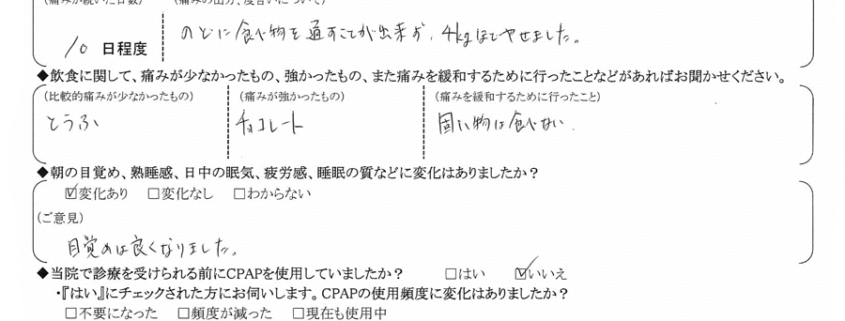 (痛みが続いた日数)
(痛みの出方、度合いについて)
10 日程度
のどに食べ物を通すことが出来ず、4kgほどやせました。
◆飲食に関して、痛みが少なかったもの、強かったもの、また痛みを緩和するために行ったことなどがあればお聞かせください。
(比較的痛みが少なかったもの)
(痛みが強かったもの)
(痛みを緩和するために行ったこと)
とうふ
チョコレート
固い物は食べない.
◆朝の目覚め、熟睡感、日中の眠気、疲労感、睡眠の質などに変化はありましたか?
☑変化あり □変化なし □わからない
(ご意見)
目覚めは良くなりました。
◆当院で診療を受けられる前にCPAPを使用していましたか? □はい ☑いいえ
・『はい』にチェックされた方にお伺いします。CPAPの使用頻度に変化はありましたか?
□不要になった □頻度が減った □現在も使用中